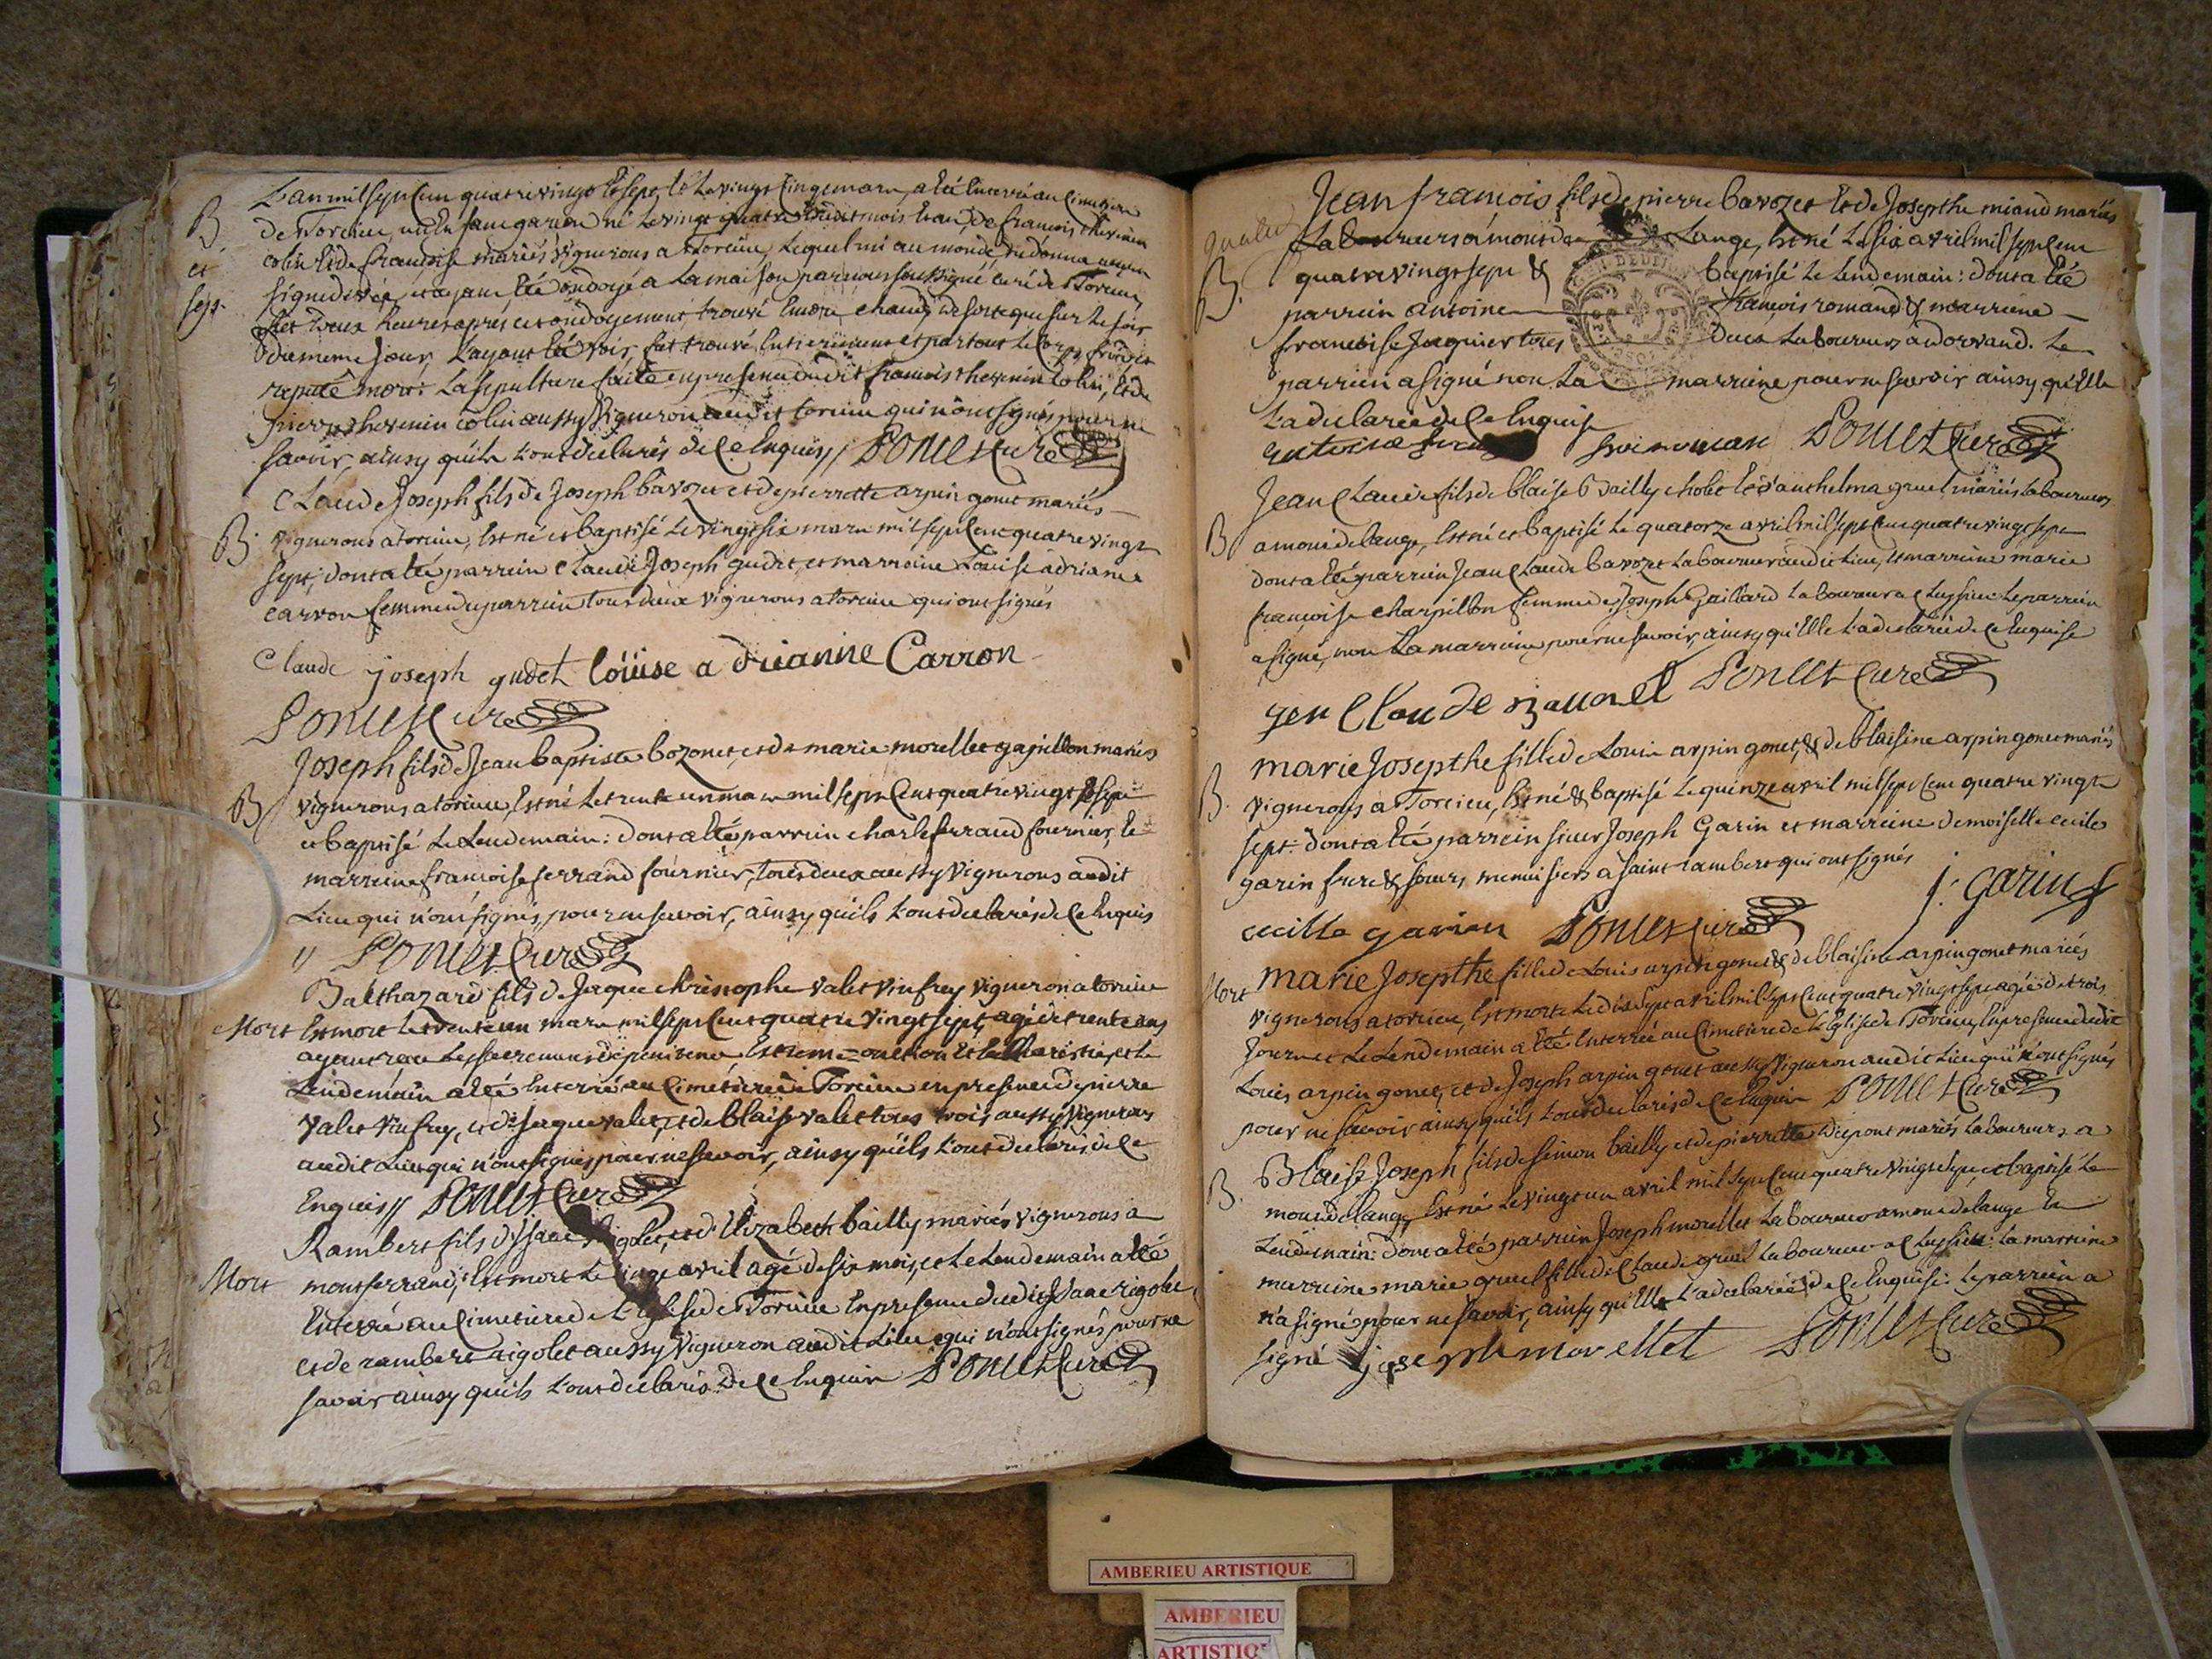 L'an mil sept cent quatre vingt et sept, et Le vingt cinq mars, a été Enterré au Cimetiere
B. de Torcieu, un Enfant garcon né Le vingt quatre dudit mois
et colin Et de francoise mariés vignerons a Torcieu, Lequel né au monde
sept. signe de vie, et ayant été ondoyé a La maison par nous soussigné curé de Torcieu,
et deux heures aprés cet ondoyement, trouvé Encore chaud, de sorte que sur Le soir
du meme Jour, L'ayant été voir, fut trouvé Entierement et partout Le corps froid et
reputé mort. La sepulture faite en presence dudit francois thevenin colin, Et de
pierre thevenin colin aussy vigneron audit torcieu qui n'ont signés pour ne
savoir, ainsy qu'ils L'ont declarés de ce Enquis // Poncet Curé
Claude Joseph fils de Joseph bavozet et de pierrette arpin gonet mariés
B. vignerons a torcieu, Est né et baptisé Le vingt six mars mil sept cent quatre vingt
sept; dont a été parrein Claude Joseph gudet, et marreine Louise adrianne
carron femme du parrein tous deux vignerons a torcieu qui ont signés
Claude joseph gudet loüise a drianne Carron
Poncet Curé
Joseph fils de Jean baptiste bozonet, et de marie morellet gapillon mariés
B vignerons a torcieu, Est né Le trente un mars mil sept Cent quatre vingt et sept
et baptisé Le Lendemain: dont a été parrein charle ferrand fournier, Et
marreine francoise ferrand fournier, tous deux aussy vignerons audit
Lieu qui n'ont signés, pour ne savoir, ainsy qu'ils L'ont declarés de ce Enquis
// Poncet Curé
Balthazard fils de Jaque christophe valet vinfrey vigneron a torcieu
Mort Est mort Le trente un mars mil sept Cent quatre vingt sept, agé de trente ans
ayant reçu Les sacremens de penitence Extreme = onction Et Eucharistie, et Le
Lendemain a été Enterré au Cimetiere de Torcieu en presence de pierre
valet vinfrey, et de Jaque valet, et de blaise valet tous trois aussy vignerons
audit Lieu qui n'ont signés pour ne savoir, ainsy qu'ils L'ont declarés de ce
Enquis // Poncet Curé
Rambert fils d'Isaac rigolet, et d'Elizabeth bailly mariés vignerons a
Mort montferrand, Est mort Le avril agé de six mois, et Le Lendemain a été
Enterré au Cimetiere de L'Eglise de Torcieu En presence dudit Isaac rigolet,
et de rambert rigolet aussy vigneron audit Lieu qui n'ont signés pour ne
savoir ainsy qu'ils L'ont declarés de ce Enquis Poncet Curé
Jean francois fils de pierre bavozet Et de Josepthe miand mariés
Laboureurs a mont de Lange, Est né Le six avril mil sept Cent
B. quatre vingt sept & baptisé Le Lendemain: dont a été
parrein antoine francois romand & marreine
francoise Jaquier tous deux Laboureurs a dorvand. Le
parrein a signé non La marreine pour ne savoir ainsy qu'Elle
L'a declarée de ce Enquise
antoine Poncet Curé
Jean Claude fils de blaise bailly chobet Et d'anthelma gruel mariés Laboureurs
B a mont de lange, Est né et baptisé Le quatorze avril mil sept Cent quatre vingt sept
dont a été parrein Jean Claude bavozet Laboureur audit Lieu, Et marreine marie
françoise charpillon femme de Joseph Gaillard Laboureur a Cleyzieu. Le parrein
a signé, non La marreine, pour ne savoir, ainsy qu'Elle L'a declarée de ce Enquise
gen Claude bauozet Poncet Curé
marie Josepthe fille de Louis arpin gonet, & de blaisine arpin gonet mariés
B. vignerons a Torcieu, Est né & baptisé Le quinze avril mil sept Cent quatre vingt
sept. dont a été parrein sieur Joseph Garin et marreine demoiselle cecile
garin frere & sœur, menuisiers a saint rambert qui ont signés
j: garin
cecille garien Poncet Curé
Mort marie Josepthe fille de Louis arpin gonet & de blaisine arpin gonet mariés
vignerons a torcieu, Est morte Le dix sept avril mil sept Cent quatre vingt sept, agée de trois
Jours et Le Lendemain a été Enterrée au Cimetiere de L'Eglise de Torcieu, En presence dudit
Louis arpin gonet, et de Joseph arpin gonet aussy vigneron audit Lieu qui n'ont signés
pour ne savoir ainsy qu'ils L'ont declarés de ce Enquis Poncet Curé
Blaise Joseph fils de simon bailly et de pierrette dupont mariés Laboureurs a
B. mont de lange, Est né Le vingt un avril mil sept Cent quatre vingt sept, et baptisé Le
Lendemain: dont a été parrein Joseph morellet Laboureur a mont de lange Et
marreine marie gruel fille de Claude gruel Laboureur a Cleyzieu: La marreine
n'a signé pour ne savoir, ainsy qu'Elle L'a declarée de ce Enquise: Le parrein a
signé joseph morellet Poncet Curé
AMBERIEU ARTISTIQUE
AMBERIEU
ARTISTIQ